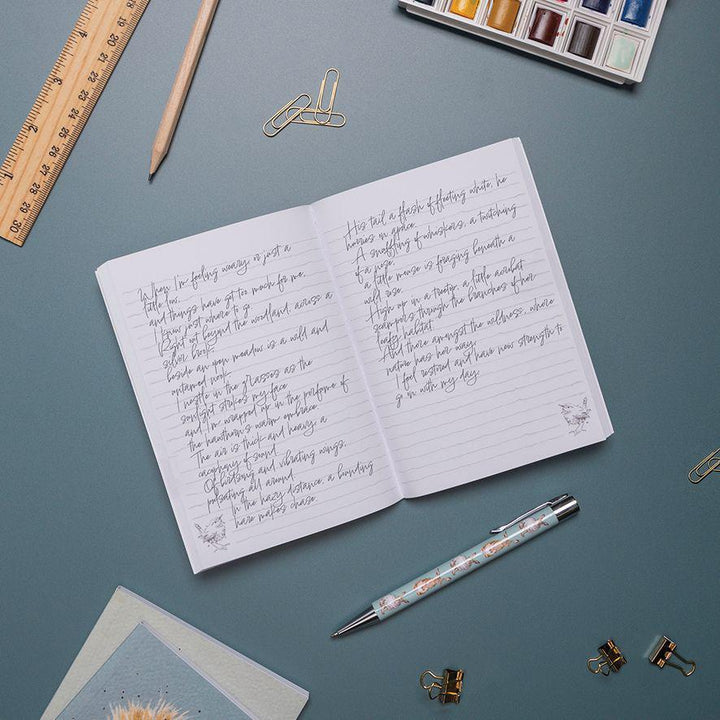 When I'm feeling weary, or just a
little low,
and things have got too much for me.
I know just where to go.
Right out beyond the woodland, across a
silver brook.
beside an open meadow is a wild and
untamed nook.
I nestle in the grasses as the
sunlight strokes my face
and I'm wrapped up in the perfume of
the hawthorn's warm embrace.
The air is thick and heavy, a
cacophony of sound.
Of birdsong and vibrating wings,
pulsating all around.
In the hazy distance, a bounding
hare makes chase.
His tail a flash of fleeting white, he
hovers in grace.
A snuffling of whiskers, a twitching
of a nose.
a little mouse is foraging beneath a
wild rose.
High up in a treetop, a little acrobat
scampers through the branches of her
leafy habitat.
And there amongst the wildness, where
nature has her way.
I feel restored and have new strength to
go on with my day.
20
21
22
23
24
25
26
27
28
29
30